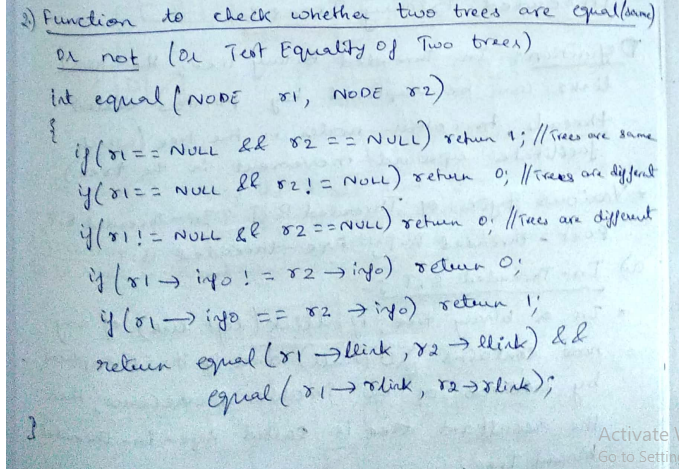 2) Function to check whether two trees are equal(same)
or not (Or Test Equality of Two trees)
int equal (NODE r1, NODE r2)
{
if(r1 == NULL && r2 == NULL) return 1; //Trees are same
if(r1 == NULL && r2 != NULL) return 0; //Trees are different
if(r1 != NULL && r2 == NULL) return 0; //Trees are different
if (r1 → info != r2 → info) return 0;
if (r1 → info == r2 → info) return 1;
return equal (r1 → llink, r2 → llink) &&
equal (r1 → rlink, r2 → rlink);
}
Activate
Go to Settin